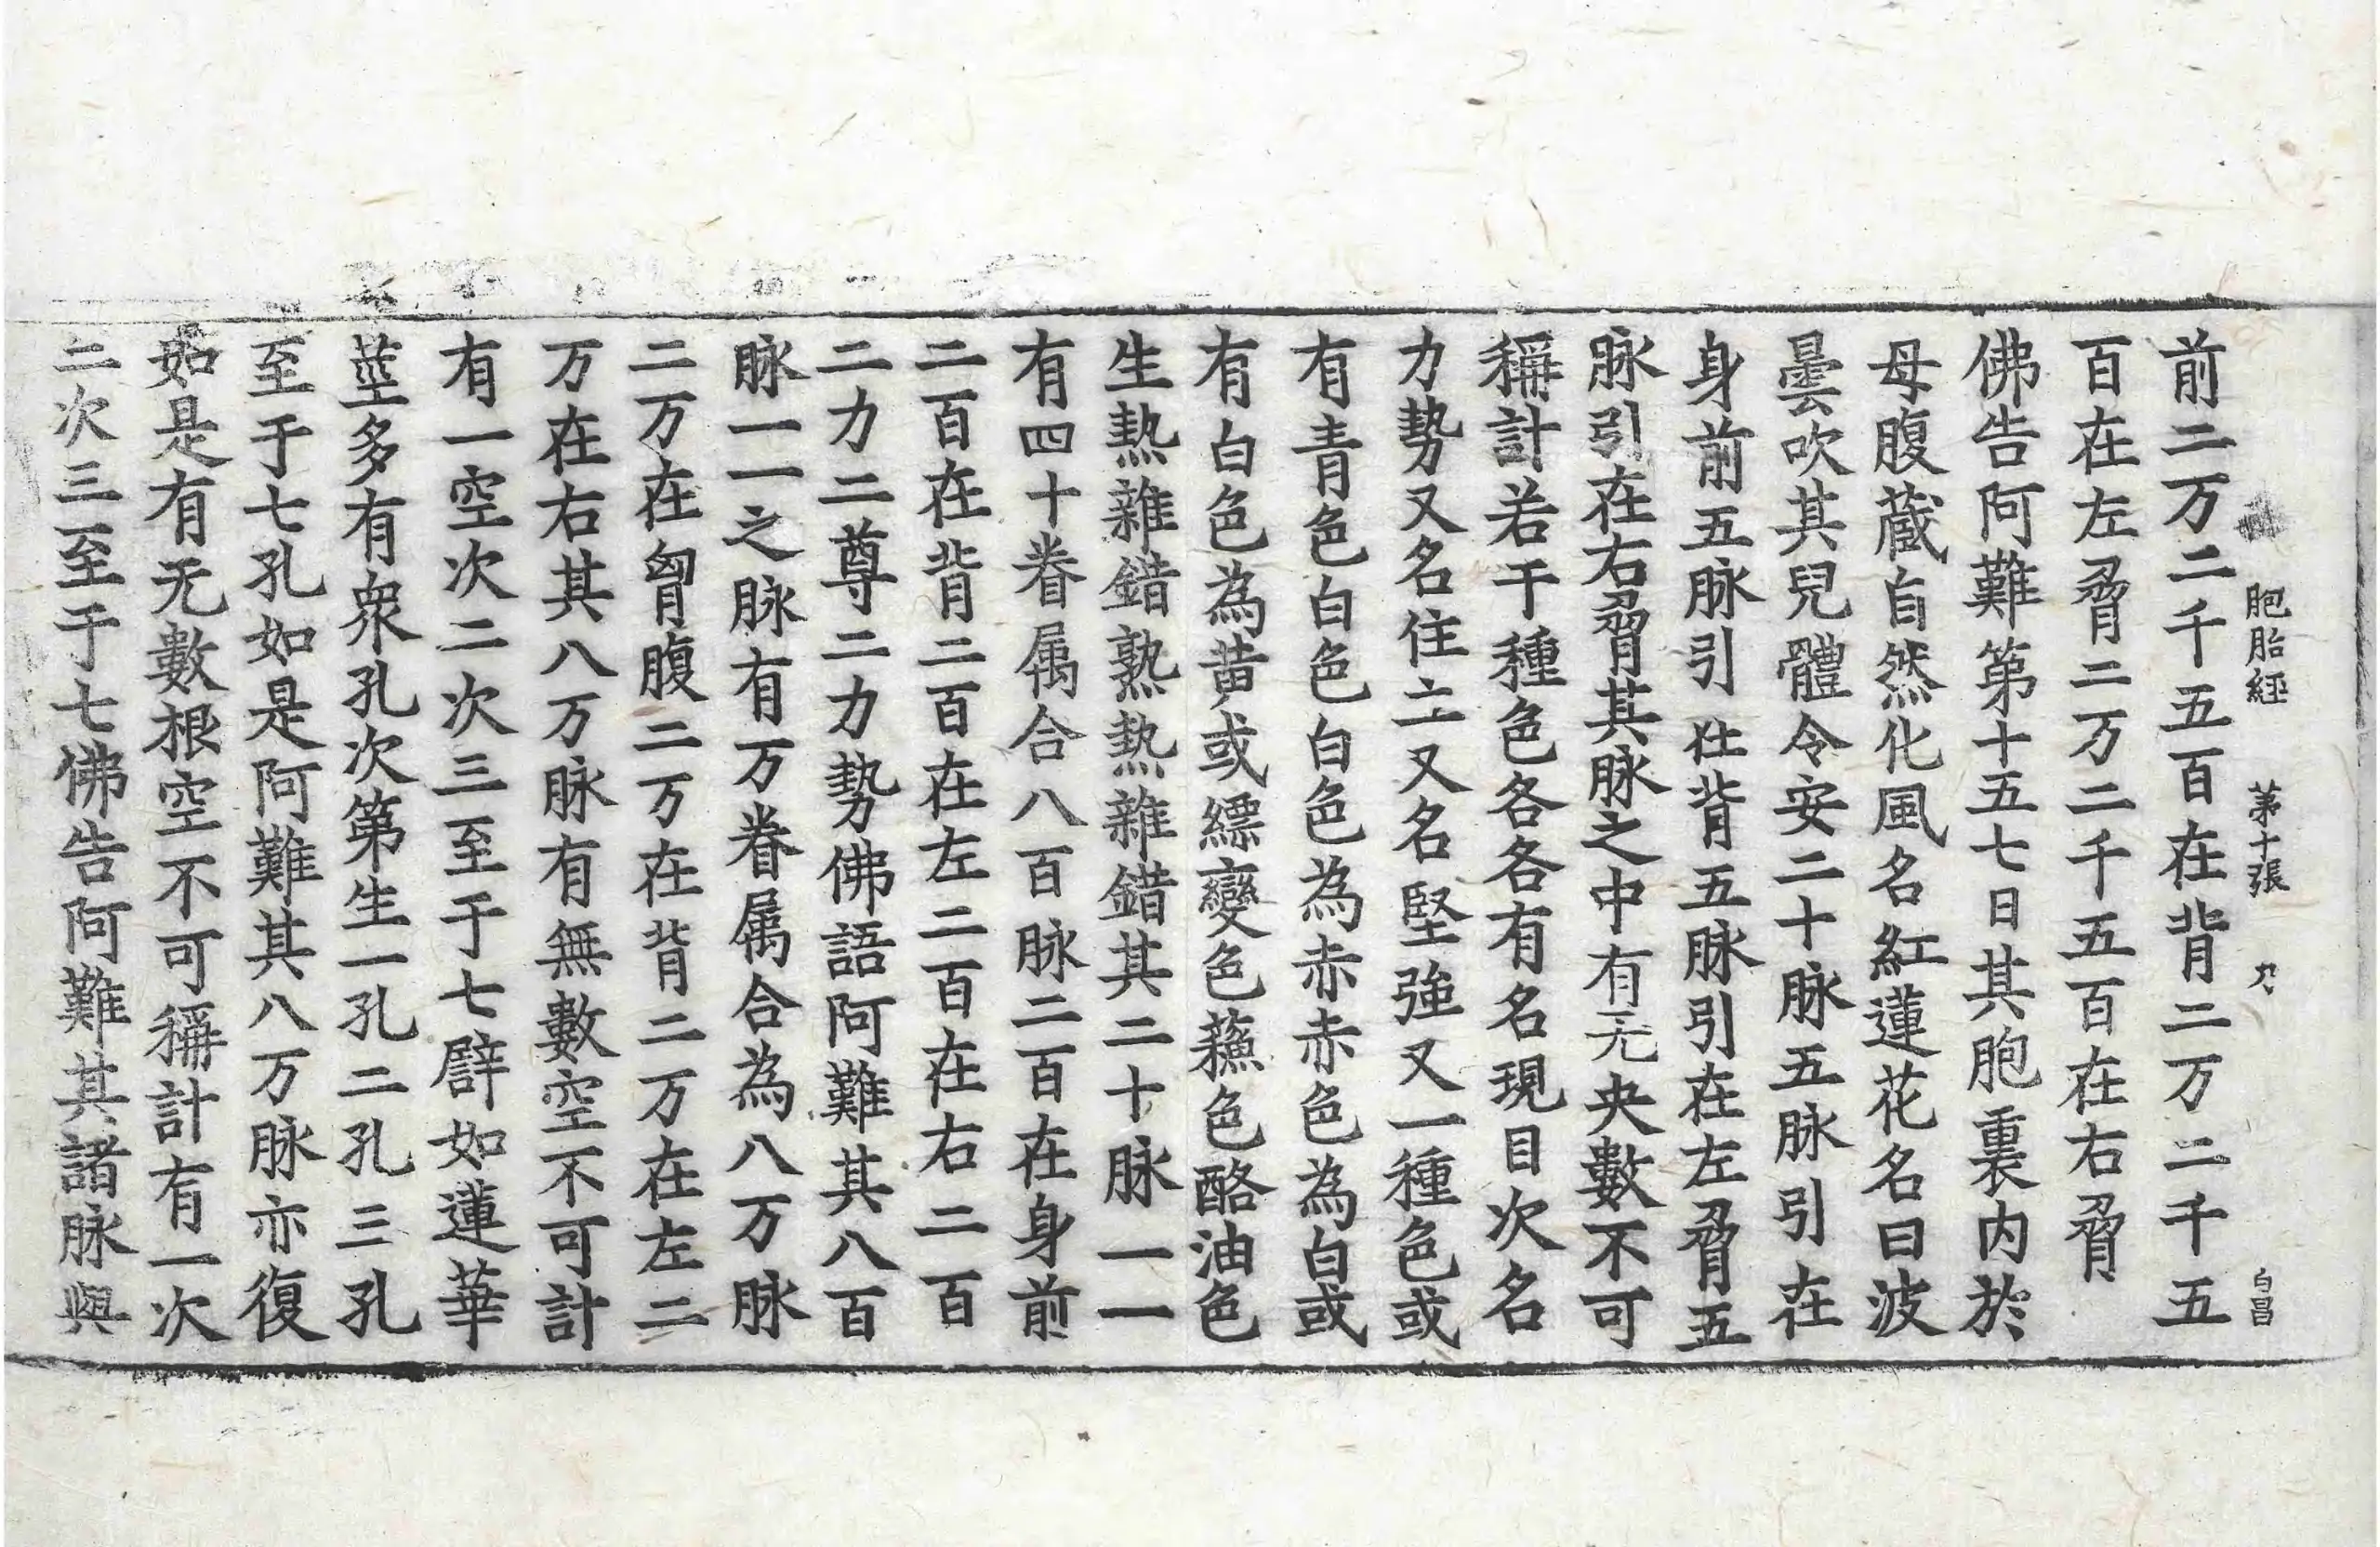 胞胎經 第十張 力 白昌
前二万二千五百在背二万二千五
百在左脅二万二千五百在右脅
佛告阿難第十五七日其胞裏内於
母腹藏自然化風名紅蓮花名曰波
曇吹其兒體令安二十脉五脉引在
身前五脉引在背五脉引在左脅五
脉引在右脅其脉之中有无央數不可
稱計若干種色各各有名現目次名
力勢又名住立又名堅強又一種色或
有青色白色白色為赤赤色為白或
有白色為黃或縹變色蘓色酪油色
生熱雜錯熟熱雜錯其二十脉一一
有四十眷属合八百脉二百在身前
二百在背二百在左二百在右二百
二力二尊二力勢佛語阿難其八百
脉一一之脉有万眷属合為八万脉
二万在胷腹二万在背二万在左二
万在右其八万脉有無數空不可計
有一空次二次三至于七譬如蓮華
莖多有衆孔次第生一孔二孔三孔
至于七孔如是阿難其八万脉亦復
如是有无數根空不可稱計有一次
二次三至于七佛告阿難其諸脉與